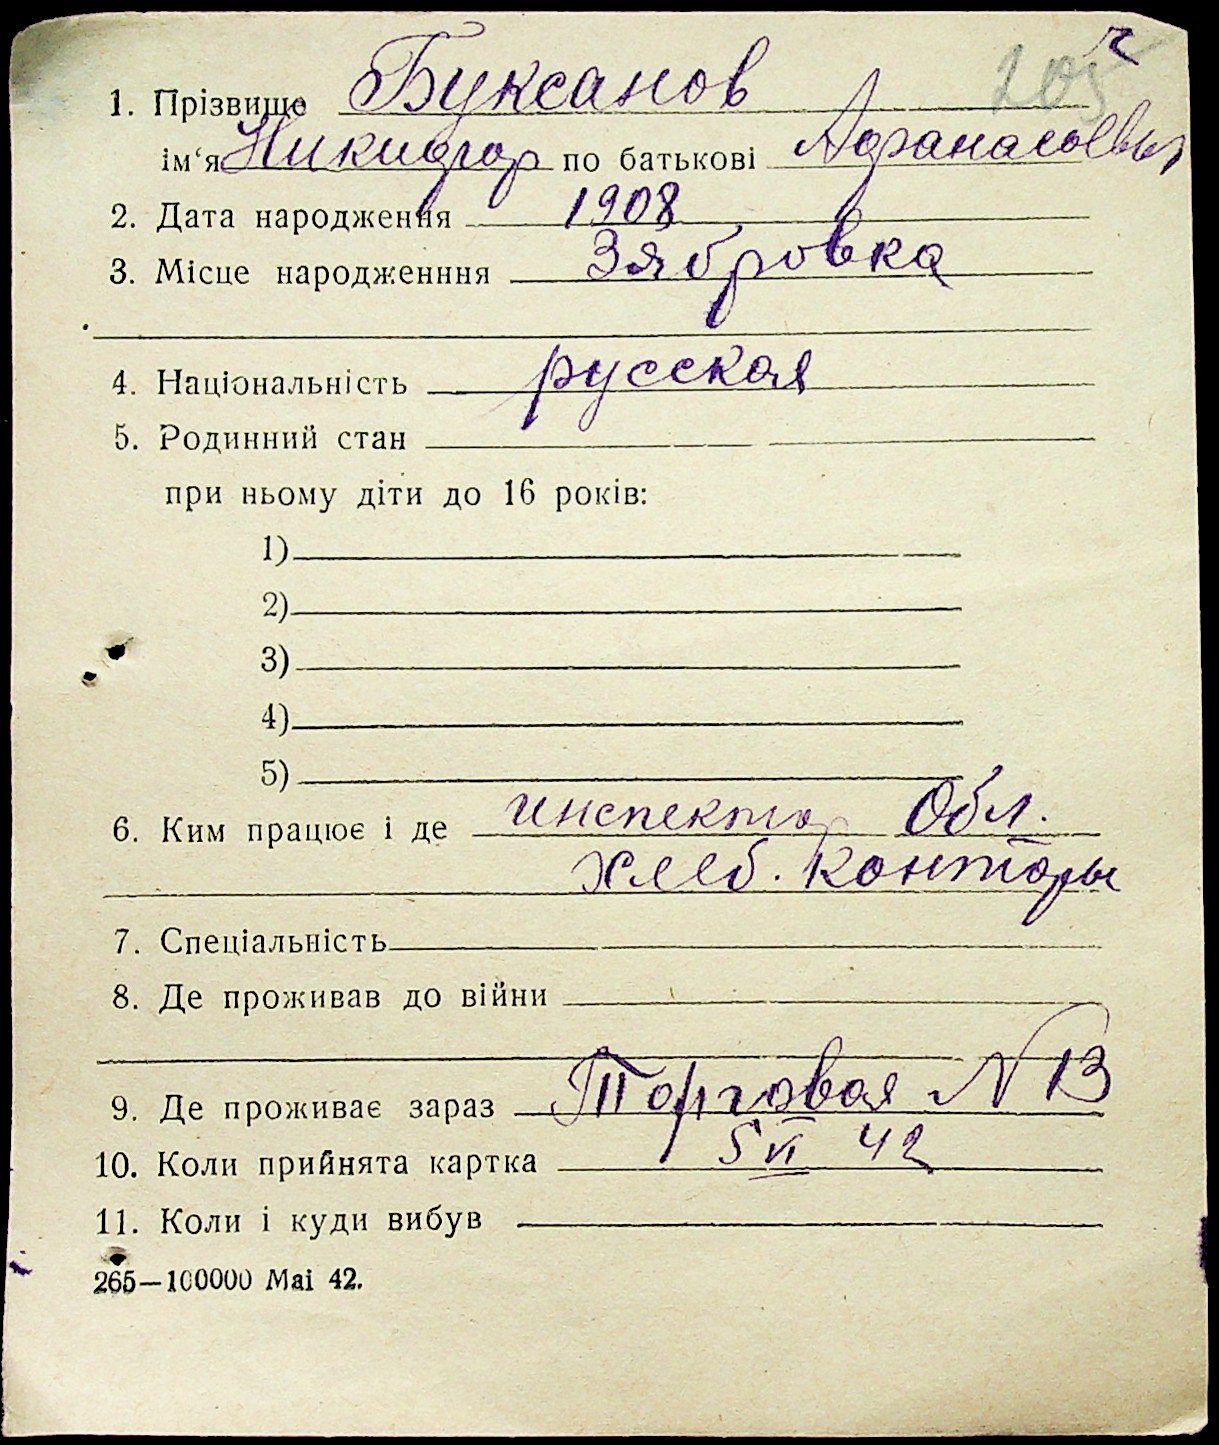 205
1. Прізвище Буксанов
ім‘я Никифор по батькові Афанасьевич
2. Дата народження 1908
3. Місце народженння Зябровка
4. Національність русская
5. Родинний стан
при ньому діти до 16 років:
1)
2)
3)
4)
5)
6. Ким працює і де инспектор Обл.
хлеб. конторы
7. Спеціальність
8. Де проживав до війни
9. Де проживає зараз Торговая N 13
10. Коли прийнята картка 5 VI 42
11. Коли і куди вибув
265—100000 Mai 42.